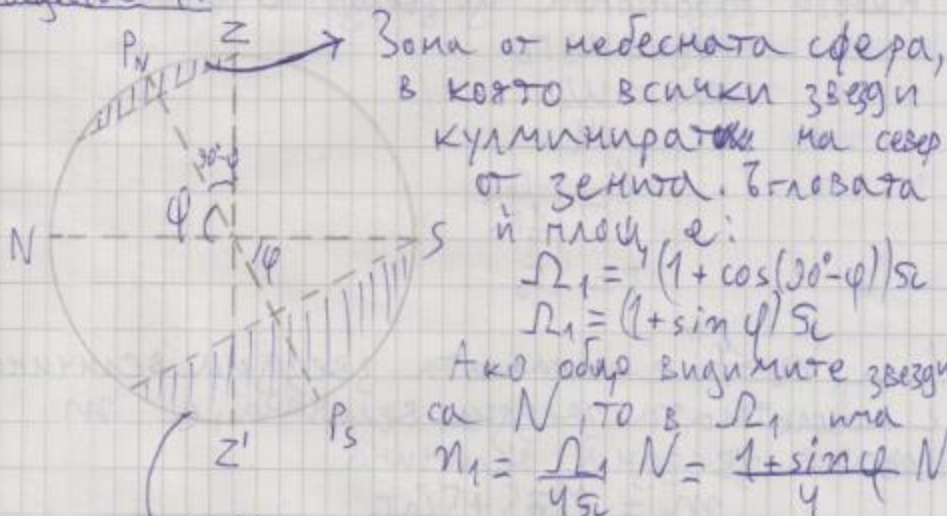 Z
P_N
90°-φ
φ
N
S
φ
Z'
P_S
Зона от небесната сфера,
в която всички звезди
кулминират на север
от зенита. Ъгловата
ѝ площ е:
Ω₁ = (1 + cos(90°-φ))π
Ω₁ = (1 + sin φ)π
Ако общо видимите звезди
са N, то в Ω₁ има
n₁ = Ω₁/4π N = 1 + sin φ/4 N